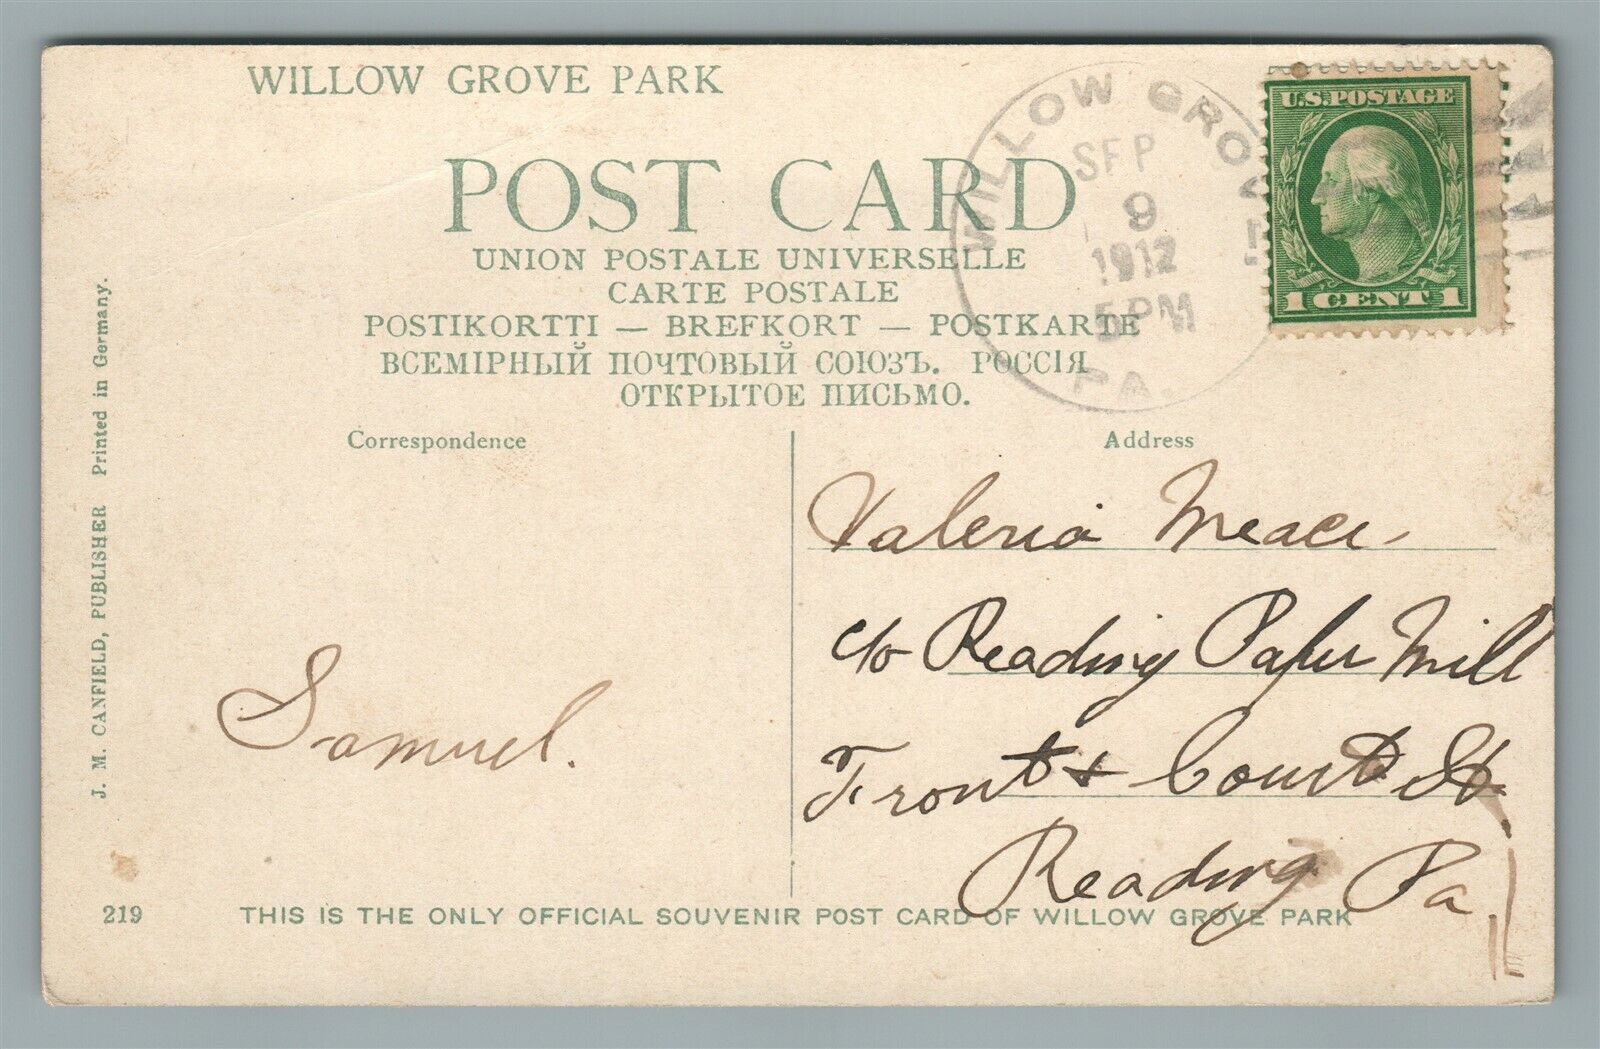 WILLOW GROVE PARK
WILLOW GRO
SEP
9
1912
5 PM
PA.
U.S. POSTAGE
1 CENT 1
POST CARD
UNION POSTALE UNIVERSELLE
CARTE POSTALE
POSTIKORTTI — BREFKORT — POSTKARTE
ВСЕМІРНЫЙ ПОЧТОВЫЙ СОЮЗЪ. РОССІЯ
ОТКРЫТОЕ ПИСЬМО.
Correspondence
Address
J. M. CANFIELD, PUBLISHER Printed in Germany.
Samuel.
Valeria
c/o Reading Paper Mill
Front & Court St.
Reading Pa.
219
THIS IS THE ONLY OFFICIAL SOUVENIR POST CARD OF WILLOW GROVE PARK